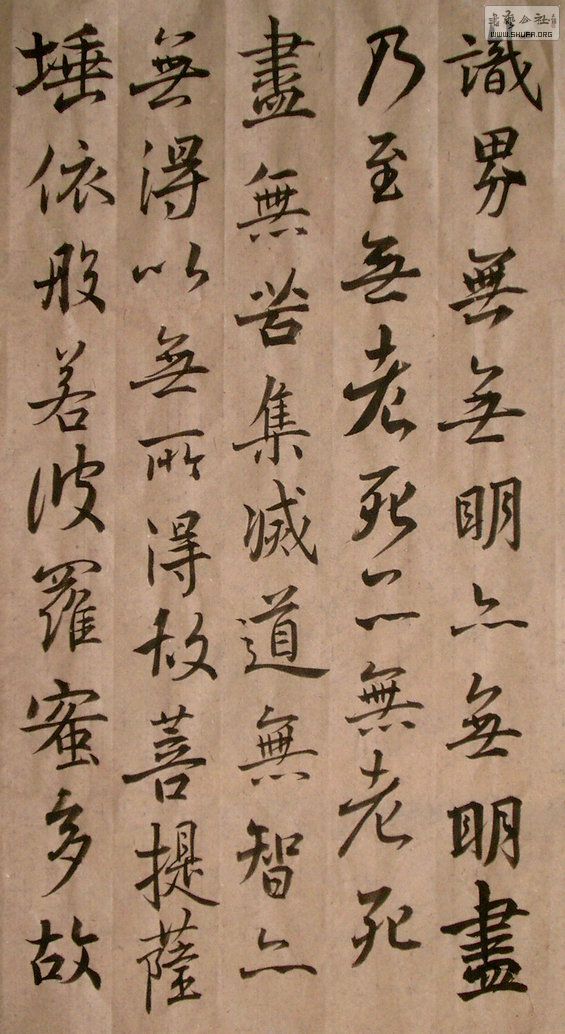 識界無無明亦無明盡
乃至無老死亦無老死
盡無苦集滅道無智亦
無得以無所得故菩提薩
埵依般若波羅蜜多故
書藝公社
WWW.SHUFA.ORG